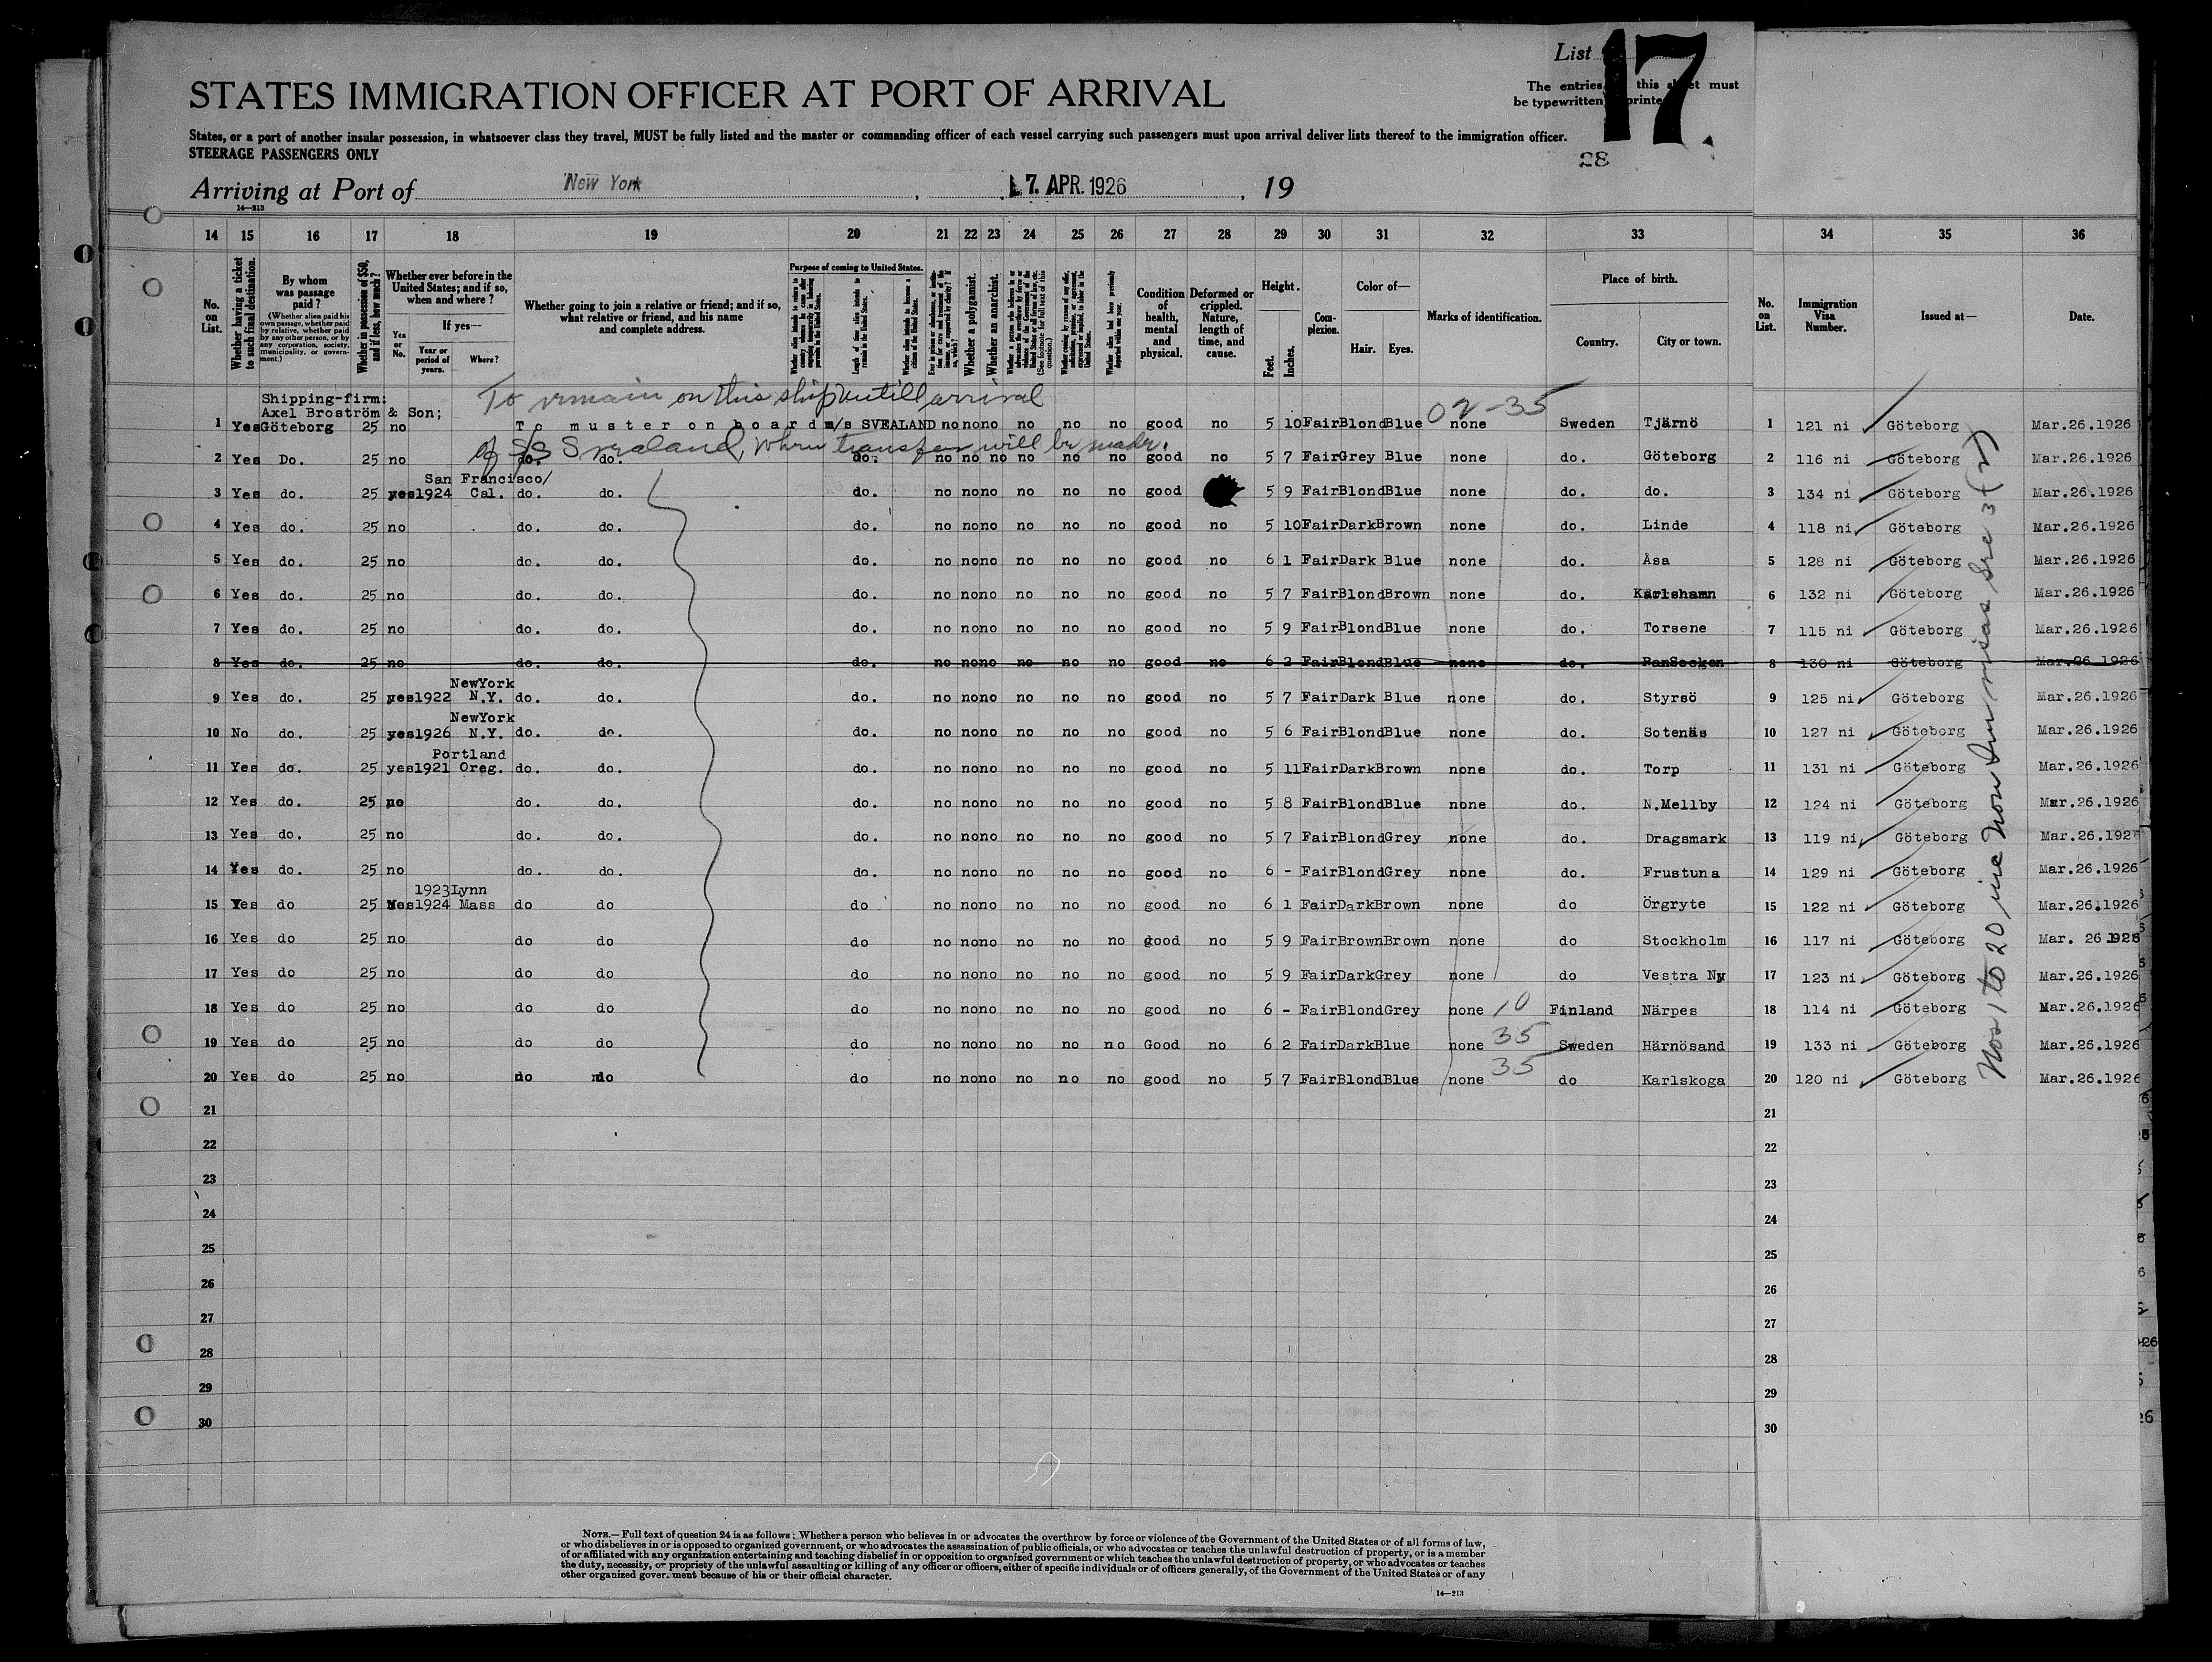 List 17.
STATES IMMIGRATION OFFICER AT PORT OF ARRIVAL
The entries this sheet must
be typewritten printe
States, or a port of another insular possession, in whatsoever class they travel, MUST be fully listed and the master or commanding officer of each vessel carrying such passengers must upon arrival deliver lists thereof to the immigration officer.
STEERAGE PASSENGERS ONLY
28
Arriving at Port of New York, 7. APR. 1926, 19
14—213
14 15 16 17 18 19 20 21 22 23 24 25 26 27 28 29 30 31 32 33 34 35 36
No. on List.
Whether having a ticket to such final destination.
By whom was passage paid?
(Whether alien paid his own passage, whether paid by relative, whether paid by any other person, or by any corporation, society, municipality, or government.)
Whether in possession of $50, and if less, how much?
Whether ever before in the United States; and if so, when and where?
Yes or No.
If yes—
Year or period of years.
Where?
Whether going to join a relative or friend; and if so, what relative or friend, and his name and complete address.
Purpose of coming to United States.
Length of time alien intends to remain in the United States.
Whether alien intends to become a citizen of the United States.
Whether a polygamist.
Whether an anarchist.
Condition of health, mental and physical.
Deformed or crippled. Nature, length of time, and cause.
Height.
Feet.
Inches.
Complexion.
Color of—
Hair.
Eyes.
Marks of identification.
Place of birth.
Country.
City or town.
No. on List.
Immigration Visa Number.
Issued at—
Date.
To remain on this ship untill arrival
of S/S Svealand, when transfer will be made.
02-35
Shipping-firm:
Axel Broström & Son;
1 Yes Göteborg 25 no To muster on board m/s SVEALAND no no no no no no good no 5 10 Fair Blond Blue none Sweden Tjärnö 1 121 ni Göteborg Mar.26.1926
2 Yes Do. 25 no do. do. do. no no no no no no good no 5 7 Fair Grey Blue none do. Göteborg 2 116 ni Göteborg Mar.26.1926
San Francisco/
3 Yes do. 25 yes 1924 Cal. do. do. do. no no no no no no good 5 9 Fair Blond Blue none do. do. 3 134 ni Göteborg Mar.26.1926
4 Yes do. 25 no do. do. do. no no no no no no good no 5 10 Fair Dark Brown none do. Linde 4 118 ni Göteborg Mar.26.1926
5 Yes do. 25 no do. do. do. no no no no no no good no 6 1 Fair Dark Blue none do. Åsa 5 128 ni Göteborg Mar.26.1926
6 Yes do. 25 no do. do. do. no no no no no no good no 5 7 Fair Blond Brown none do. Karlshamn 6 132 ni Göteborg Mar.26.1926
7 Yes do. 25 no do. do. do. no no no no no no good no 5 9 Fair Blond Blue none do. Torsene 7 115 ni Göteborg Mar.26.1926
8 Yes do. 25 no do. do. do. no no no no no no good no 6 2 Fair Blond Blue none do. RanSocken 8 130 ni Göteborg Mar.26.1926
NewYork
9 Yes do. 25 yes 1922 N.Y. do. do. do. no no no no no no good no 5 7 Fair Dark Blue none do. Styrsö 9 125 ni Göteborg Mar.26.1926
NewYork
10 No do. 25 yes 1926 N.Y. do. do. do. no no no no no no good no 5 6 Fair Blond Blue none do. Sotenäs 10 127 ni Göteborg Mar.26.1926
Portland
11 Yes do. 25 yes 1921 Oreg. do. do. do. no no no no no no good no 5 11 Fair Dark Brown none do. Torp 11 131 ni Göteborg Mar.26.1926
12 Yes do. 25 no do. do. do. no no no no no no good no 5 8 Fair Blond Blue none do. N.Mellby 12 124 ni Göteborg Mar.26.1926
13 Yes do. 25 no do. do. do. no no no no no no good no 5 7 Fair Blond Grey none do. Dragsmark 13 119 ni Göteborg Mar.26.192
14 Yes do. 25 no do. do. do. no no no no no no good no 6 - Fair Blond Grey none do. Frustuna 14 129 ni Göteborg Mar.26.1926
1923 Lynn
15 Yes do 25 Yes 1924 Mass do do do no no no no no no good no 6 1 Fair Dark Brown none do Örgryte 15 122 ni Göteborg Mar.26.1926
16 Yes do 25 no do do do no no no no no no good no 5 9 Fair Brown Brown none do Stockholm 16 117 ni Göteborg Mar. 26 1926
17 Yes do 25 no do do do no no no no no no good no 5 9 Fair Dark Grey none do Vestra Ny 17 123 ni Göteborg Mar.26.1926
18 Yes do 25 no do do do no no no no no no good no 6 - Fair Blond Grey none 10 Finland Närpes 18 114 ni Göteborg Mar.26.1926
19 Yes do 25 no do do do no no no no no no Good no 6 2 Fair Dark Blue none 35 Sweden Härnösand 19 133 ni Göteborg Mar.26.1926
20 Yes do 25 no do do do no no no no no no good no 5 7 Fair Blond Blue none 35 do Karlskoga 20 120 ni Göteborg Mar.26.1926
Nos 1 to 20 inc Non Imm visas Sec 3
21 21
22 22
23 23
24 24
25 25
26 26
27 27
28 28
29 29
30 30
NOTE.—Full text of question 24 is as follows: Whether a person who believes in or advocates the overthrow by force or violence of the Government of the United States or of all forms of law,
or who disbelieves in or is opposed to organized government, or who advocates the assassination of public officials, or who advocates or teaches the unlawful destruction of property, or is a member
of or affiliated with any organization entertaining and teaching disbelief in or opposition to organized government or which teaches the unlawful destruction of property, or who advocates or teaches
the duty, necessity, or propriety of the unlawful assaulting or killing of any officer or officers, either of specific individuals or of officers generally, of the Government of the United States or of any
other organized government because of his or their official character.
14—213